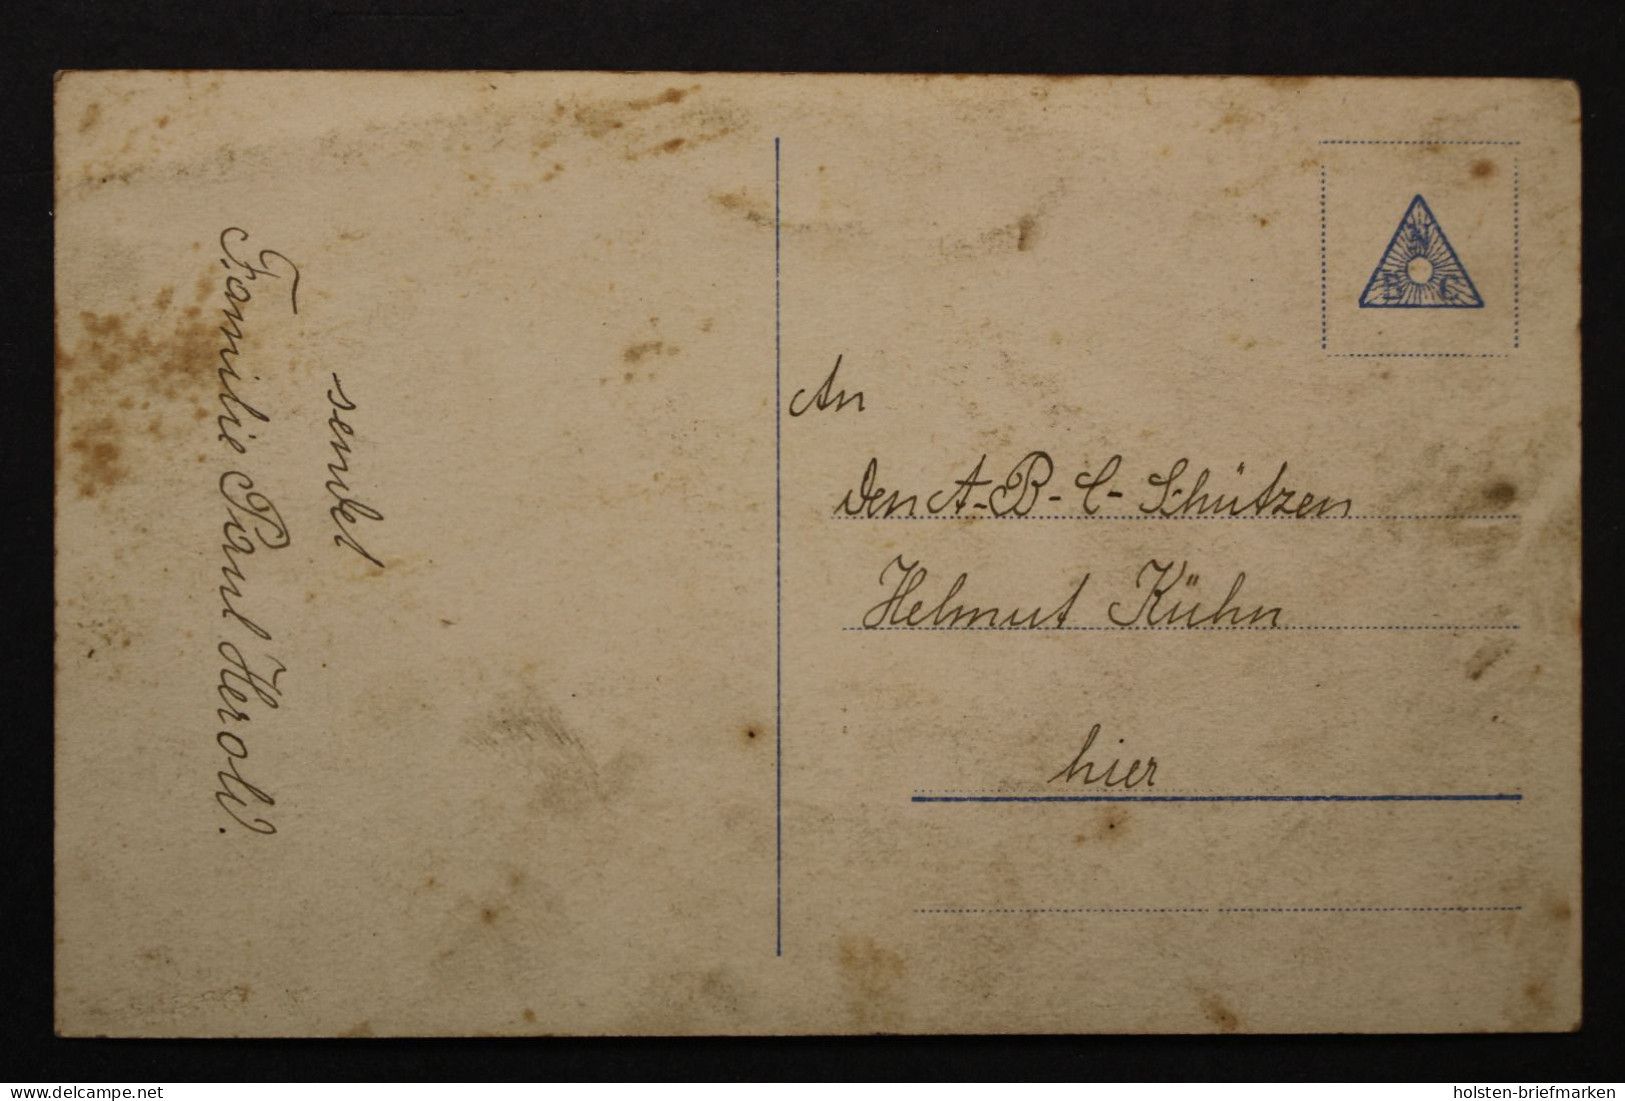 sendet
Familie Paul Herold.
N
B C
An
den A-B-C-Schützen
Helmut Kühn
hier
hosted on www.delcampe.net
holsten-briefmarken